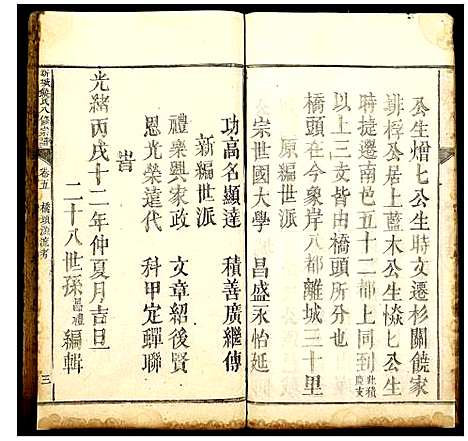 公生熷七公生時文遷杉關饒家
排桴公居上藍木公生惔七公生
時捷遷南邑五十二都上同到
以上三支皆由橋頭所分也
橋頭在今象岸八都離城三十里
原編世派
宗世國大學 昌盛永怡延
功高名顯達 積善廣繼傳
新編世派
禮樂興家政 文章紹後賢
恩光榮達代 科甲定聯
旹
光緒丙戌十二年仲夏月吉旦
二十八世孫 禮 編輯
氏八修宗譜 卷五 橋頭源流考 三